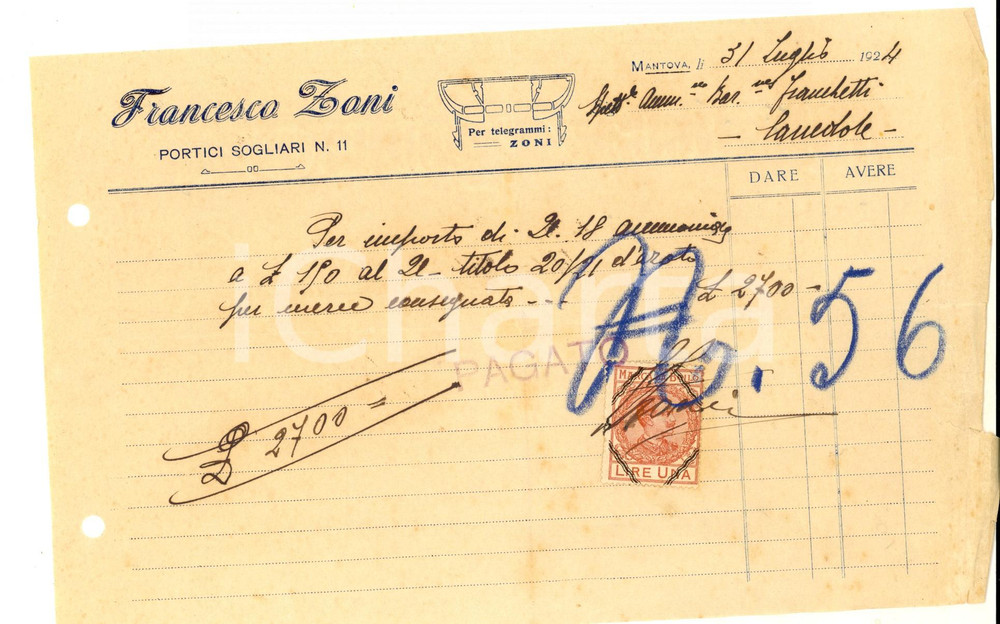 Francesco Zoni
PORTICI SOGLIARI N. 11
Per telegrammi:
ZONI
MANTOVA, li 31 Luglio 1924
Spett.le Amm.ne Bar. Franchetti
- Canedole -
DARE AVERE
Per importo di Ql. 18
a £ 150 al Ql - titolo 20/21 d'azoto
per merce consegnata - - £ 2700 -
N. 56
PAGATO
£ 2700 =
MARCA DA BOLLO
Zoni
LIRE UNA
iCharta